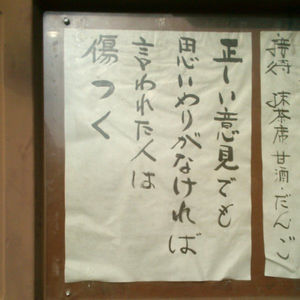 正しい意見でも
思いやりがなければ
言われた人は
傷つく
接待 抹茶席 甘酒・だんご